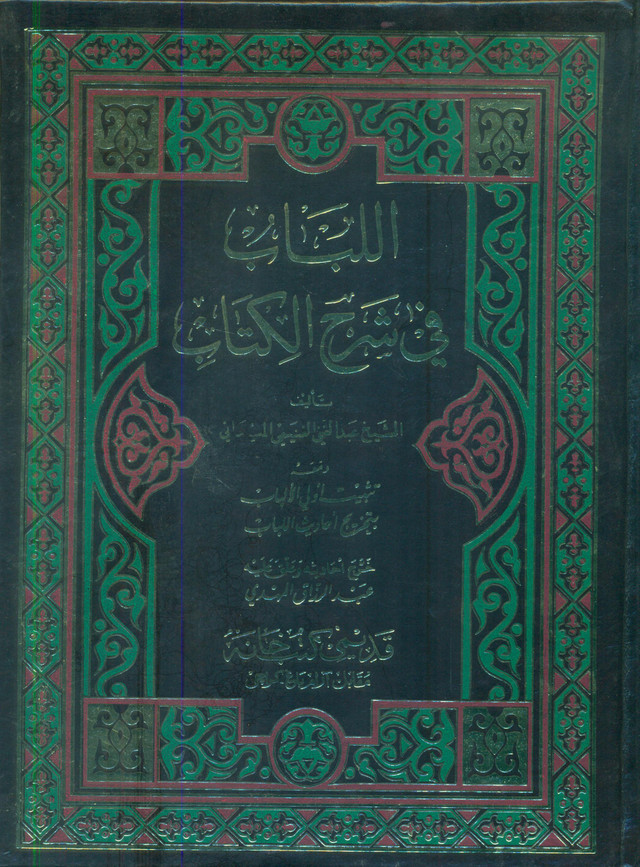 اللُّبَابُ
فِي شَرْحِ الْكِتَابِ
تأليف
الشيخ عبد الغني الغنيمي الميداني
ومعه
تثبيت أولي الألباب
بتخريج أحاديث اللباب
خرج أحاديثه وعلق عليه
عبد الرزاق المهدي
قديمى كتب خانه
مقابل آرام باغ كراچى